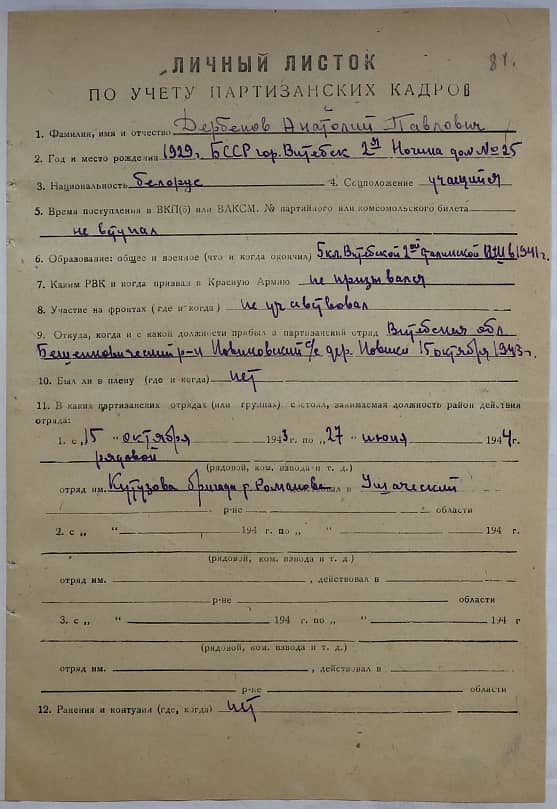 81.
ЛИЧНЫЙ ЛИСТОК
ПО УЧЕТУ ПАРТИЗАНСКИХ КАДРОВ
1. Фамилия, имя и отчество Дербенов Анатолий Павлович
2. Год и место рождения 1929г. БССР гор. Витебск 2ая Ногина дом № 25
3. Национальность белорус 4. Соцположение учащийся
5. Время поступления в ВКП(б) или ВЛКСМ. № партийного или комсомольского билета
не вступал
6. Образование: общее и военное (что и когда окончил) 5 кл. Витебской 2ой в 1941г.
7. Каким РВК и когда призван в Красную Армию не призывался
8. Участие на фронтах (где и когда) не участвовал
9. Откуда, когда и с какой должности прибыл в партизанский отряд Витебская обл
Бешенковический р-н Новиковский с/с дер. Новики 15 октября 1943г.
10. Был ли в плену (где и когда) нет
11. В каких партизанских отрядах (или группах) состоял, занимаемая должность район действия
отряда:
1. с „15" октября 1943г. по „27" июня 1944г.
рядовой
(рядовой, ком. взвода и т. д.)
отряд им. Кутузова бригада т. Романова в Ушаческий
р-не области
2. с „ " 194 г. по „ " 194 г.
(рядовой, ком. взвода и т. д.)
отряд им. , действовал в
р-не области
3. с „ " 194 г. по „ " 194 г
(рядовой, ком. взвода и т. д.)
отряд им. , действовал в
р-не области
12. Ранения и контузия (где, когда) нет